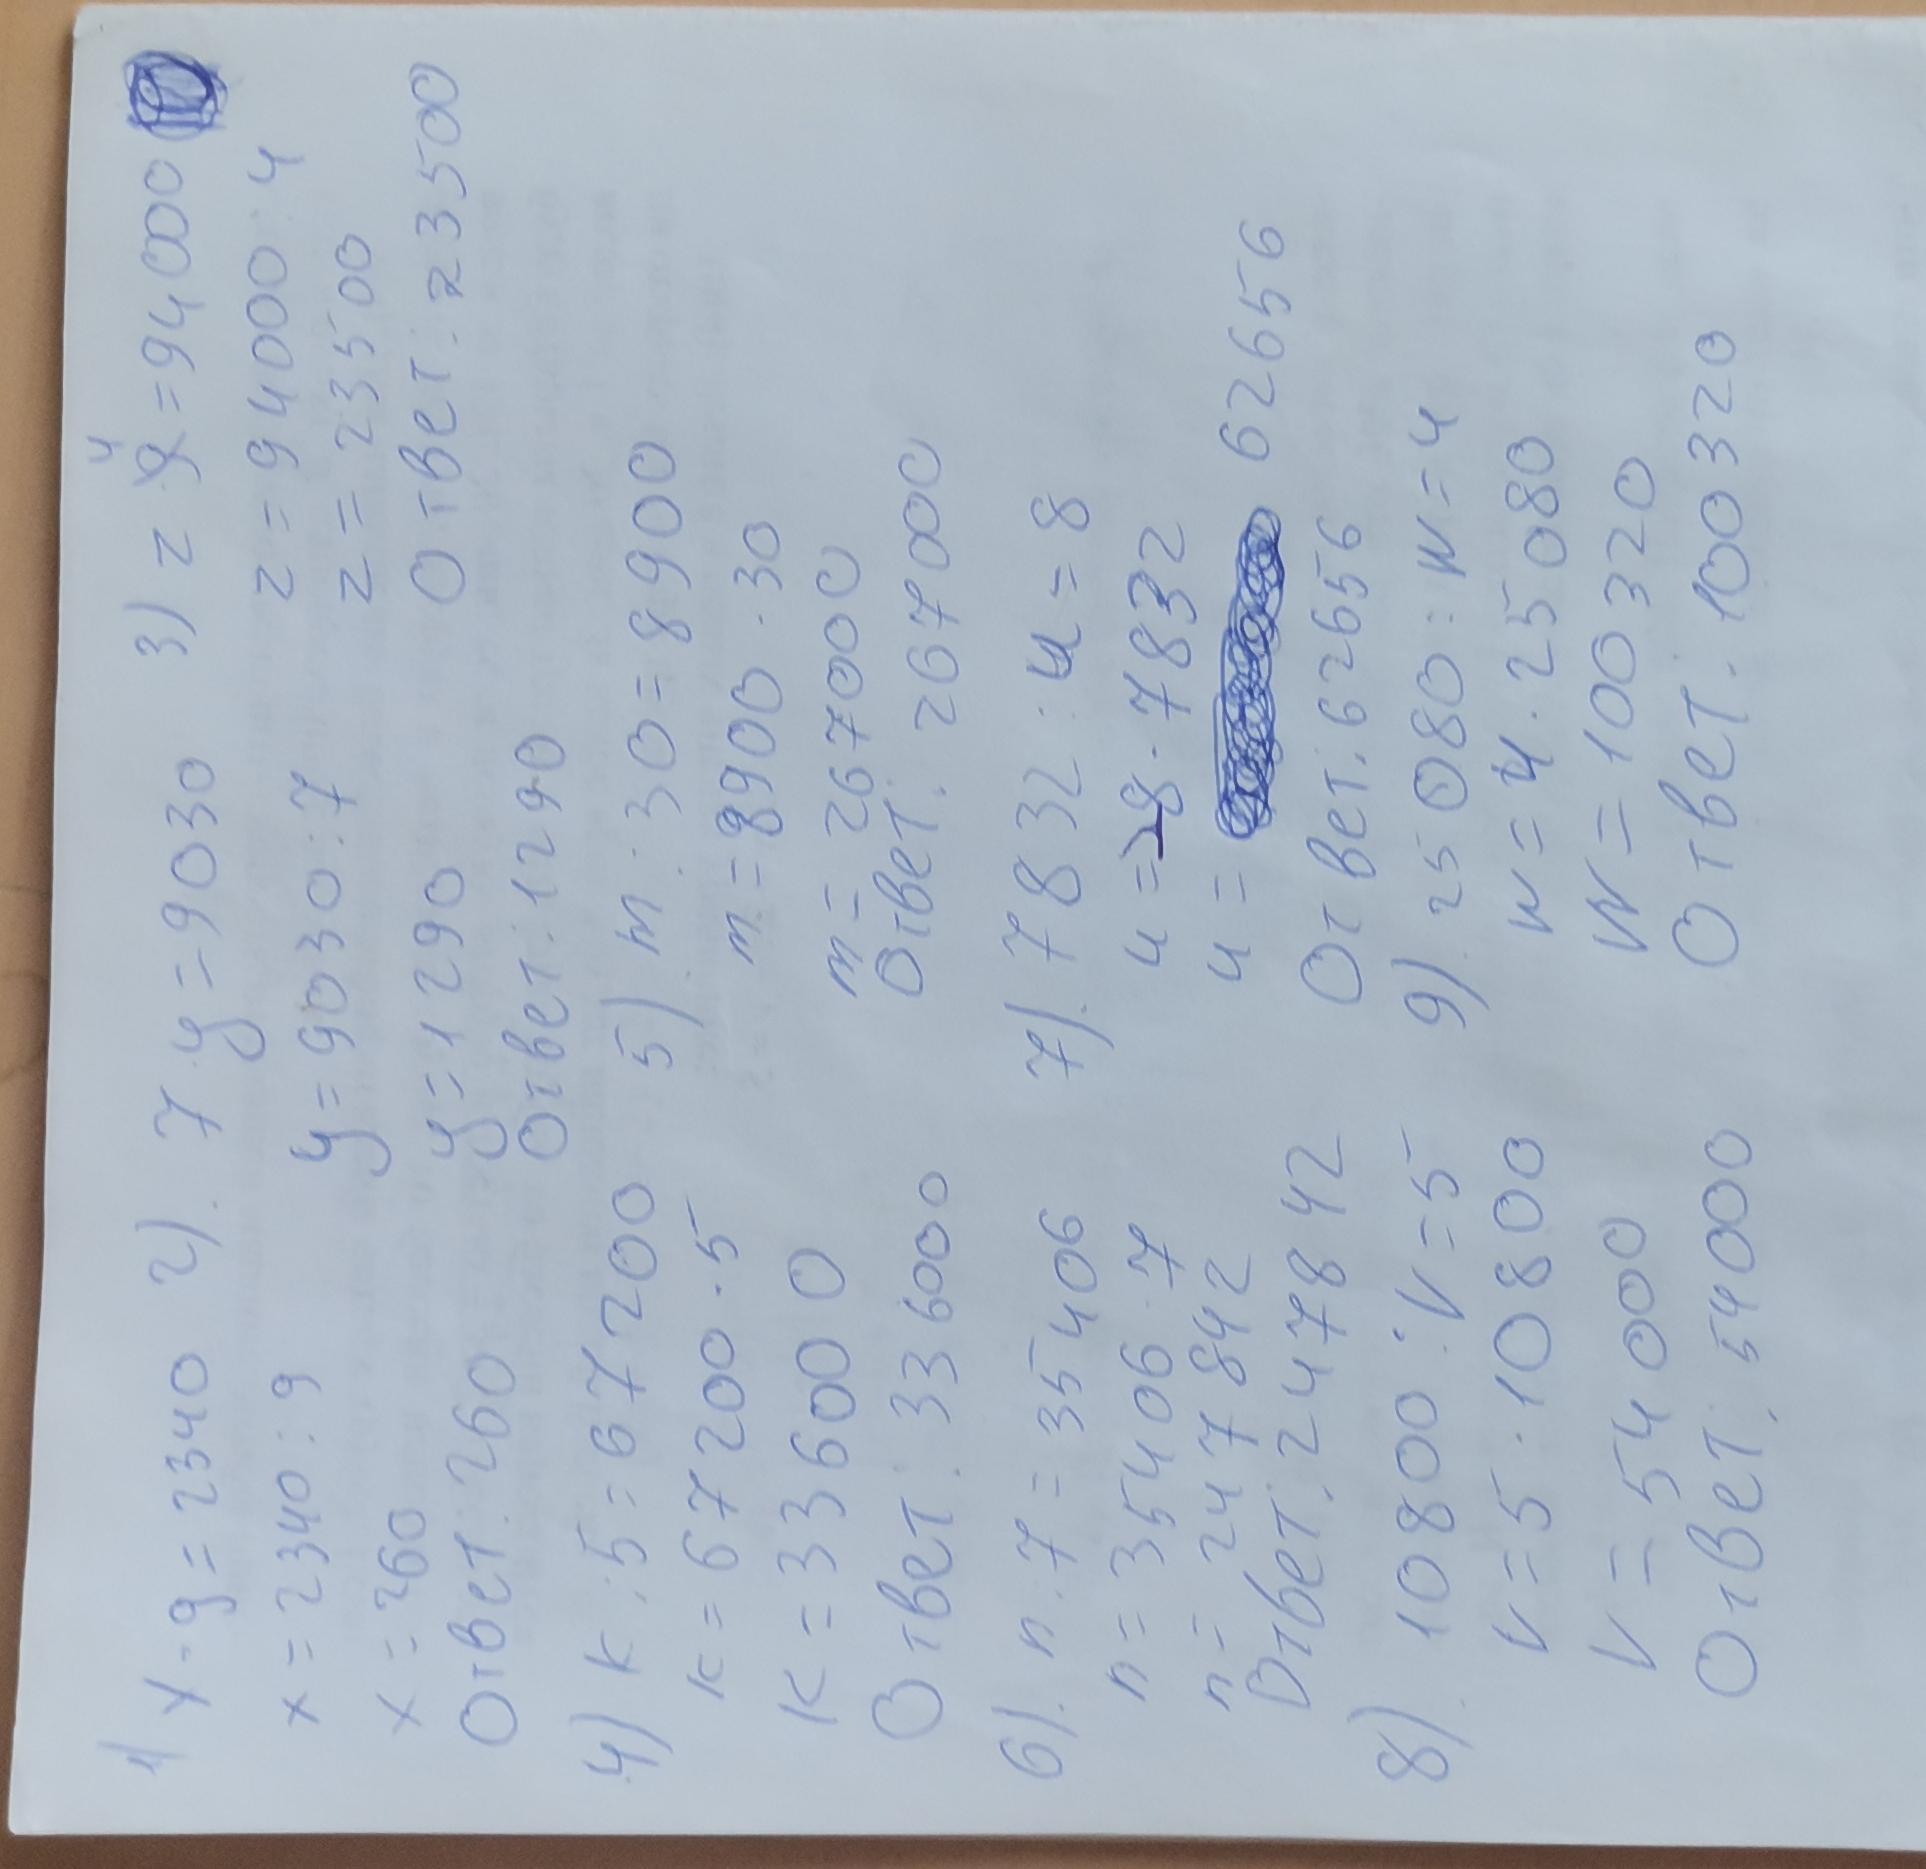 1) x·9=2340
x=2340:9
x=260
Ответ:260
2). 7·y=9030
y=9030:7
y=1290
Ответ:1290
3) z·4=94000
z=94000:4
z=23500
Ответ:23500
4) k:5=67200
k=67200·5
k=336000
Ответ:336000
5) m:30=8900
m=8900·30
m=267000
Ответ:267000
6). n:7=35406
n=35406·7
n=247842
Ответ:247842
7). 7832:u=8
u=8·7832
u= 62656
Ответ:62656
8). 10800:v=5
v=5·10800
v=54000
Ответ:54000
9). 25080:w=4
w=4·25080
w=100320
Ответ:100320